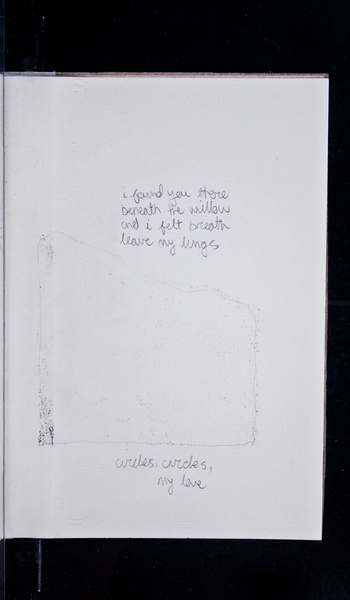 i found you there
beneath the willow
and i felt breath
leave my lungs
circles, circles,
my love